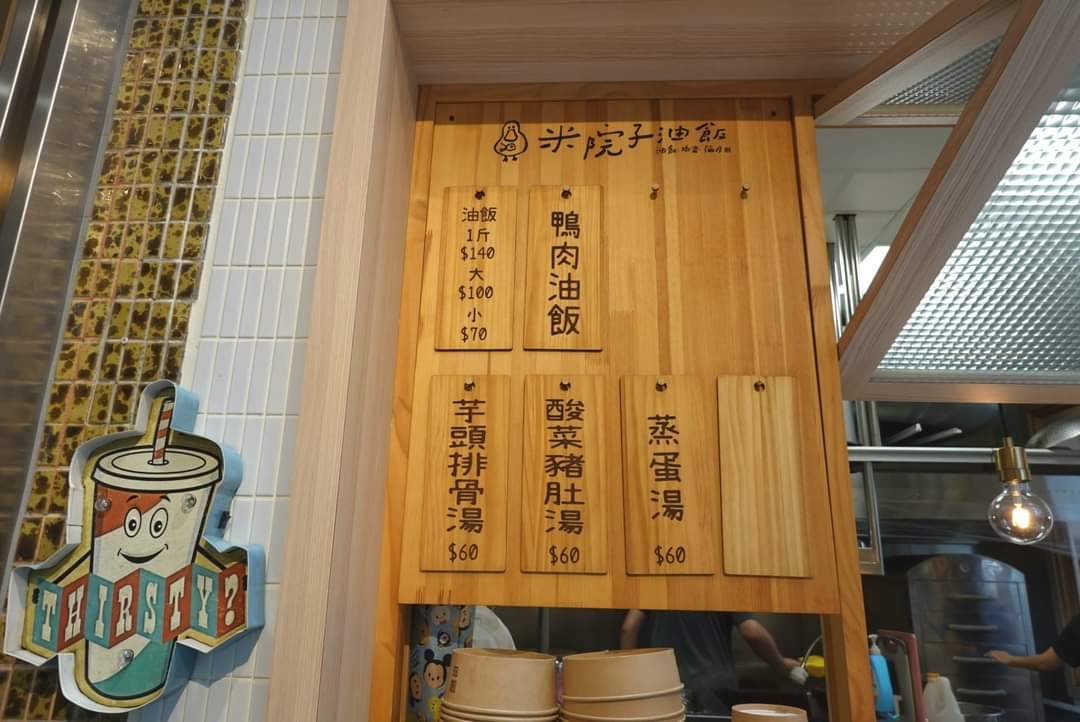 米院子油飯
油飯
1斤
$140
大
$100
小
$70
鴨肉油飯
芋頭排骨湯
$60
酸菜豬肚湯
$60
蒸蛋湯
$60
THIRSTY?